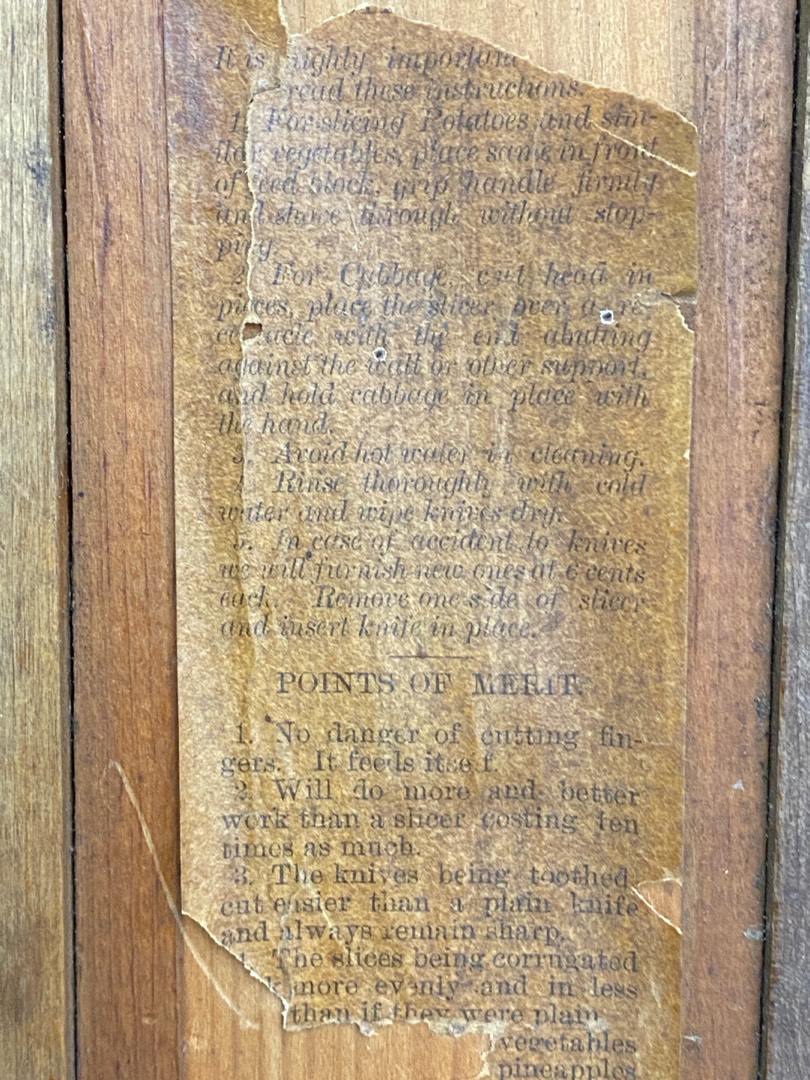 It is highly important
read these instructions.
1. For slicing Potatoes and sim-
ilar vegetables, place same in front
of feed block, grip handle firmly
and shove through without stop-
ping.
2. For Cabbage, cut head in
pieces, place the slicer over a re-
ceptacle with the end abutting
against the wall or other support,
and hold cabbage in place with
the hand.
3. Avoid hot water in cleaning.
4. Rinse thoroughly with cold
water and wipe knives dry.
5. In case of accident to knives
we will furnish new ones at 6 cents
each. Remove one side of slicer
and insert knife in place.
POINTS OF MERIT.
1. No danger of cutting fin-
gers. It feeds itself.
2. Will do more and better
work than a slicer costing ten
times as much.
3. The knives being toothed
cut easier than a plain knife
and always remain sharp.
4. The slices being corrugated
more evenly and in less
than if they were plain
vegetables
pineapples